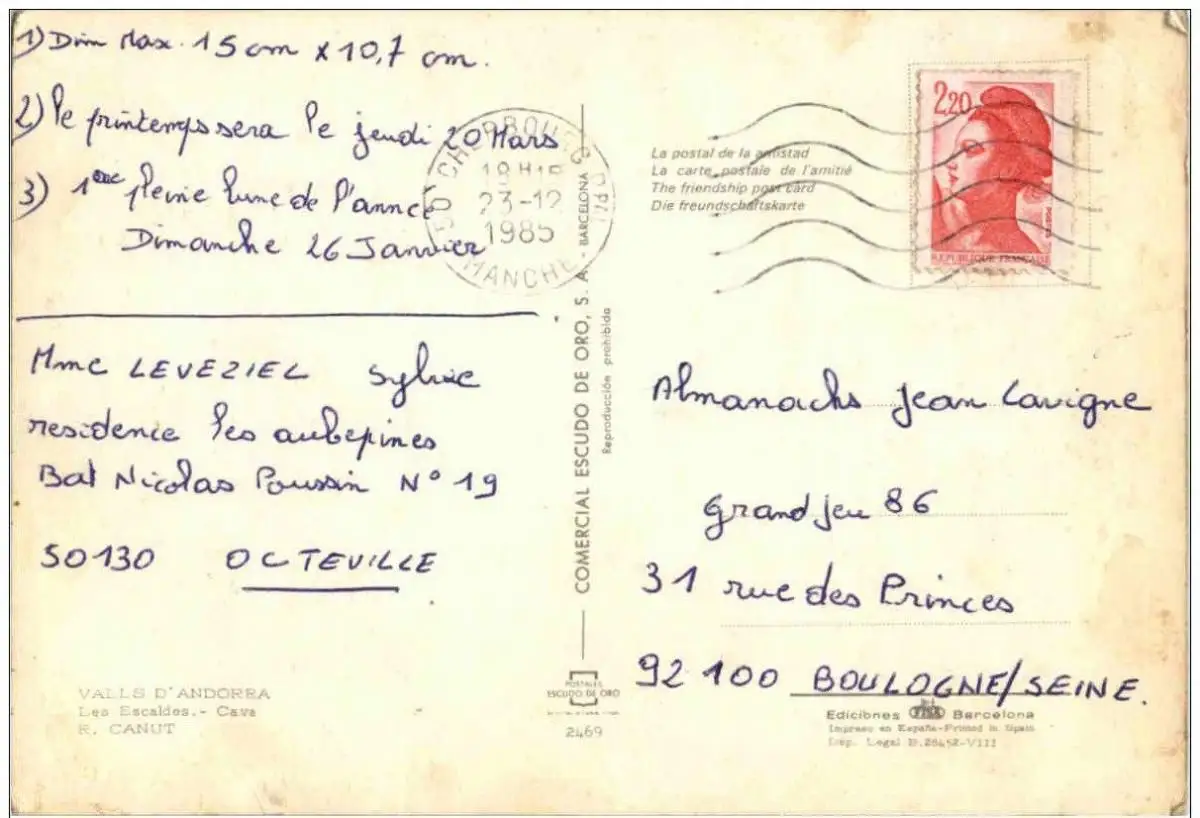 1) Dim Max. 15 cm x 10,7 cm.
2) le printemps sera le jeudi 20 Mars
3) 1ere pleine lune de l'annee
Dimanche 26 Janvier
Mme LEVEZIEL Sylvie
residence les aubepines
Bat Nicolas Poussin N° 19
50130 OCTEVILLE
VALLS D'ANDORRA
Les Escaldes.- Cava
R. CANUT
CHERBOURG PPAL
23-12
1985
MANCHE
COMERCIAL ESCUDO DE ORO, S. A. - BARCELONA
Reproducción prohibida
POSTALES
ESCUDO DE ORO
2469
2,20
REPUBLIQUE FRANÇAISE
POSTES
La postal de la amistad
La carte postale de l'amitié
The friendship post card
Die freundschaftskarte
Almanachs Jean Lavigne
Grand jeu 86
31 rue des Princes
92 100 BOULOGNE/SEINE.
Ediciones FISA Barcelona
Impreso en España-Printed in Spain
Dep. Legal B.28452-VIII